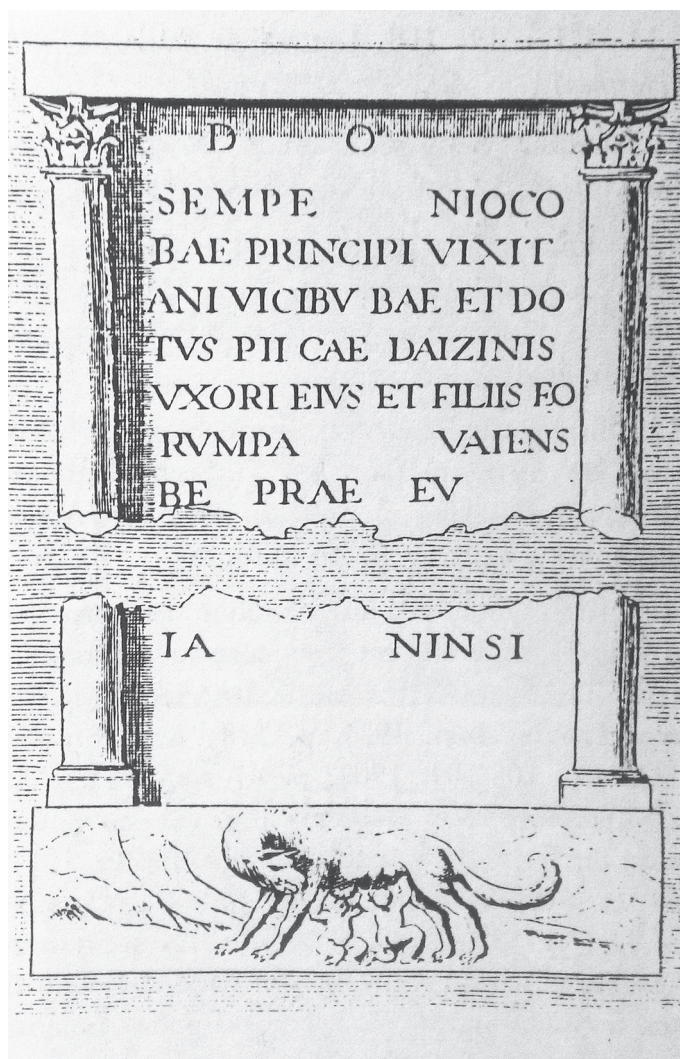 D O
SEMPE NIOCO
BAE PRINCIPI VIXIT
ANI VICIBV BAE ET DO
TVS PII CAE DAIZINIS
VXORI EIVS ET FILIIS EO
RVMPA VAIENS
BE PRAE EV
IA NINSI